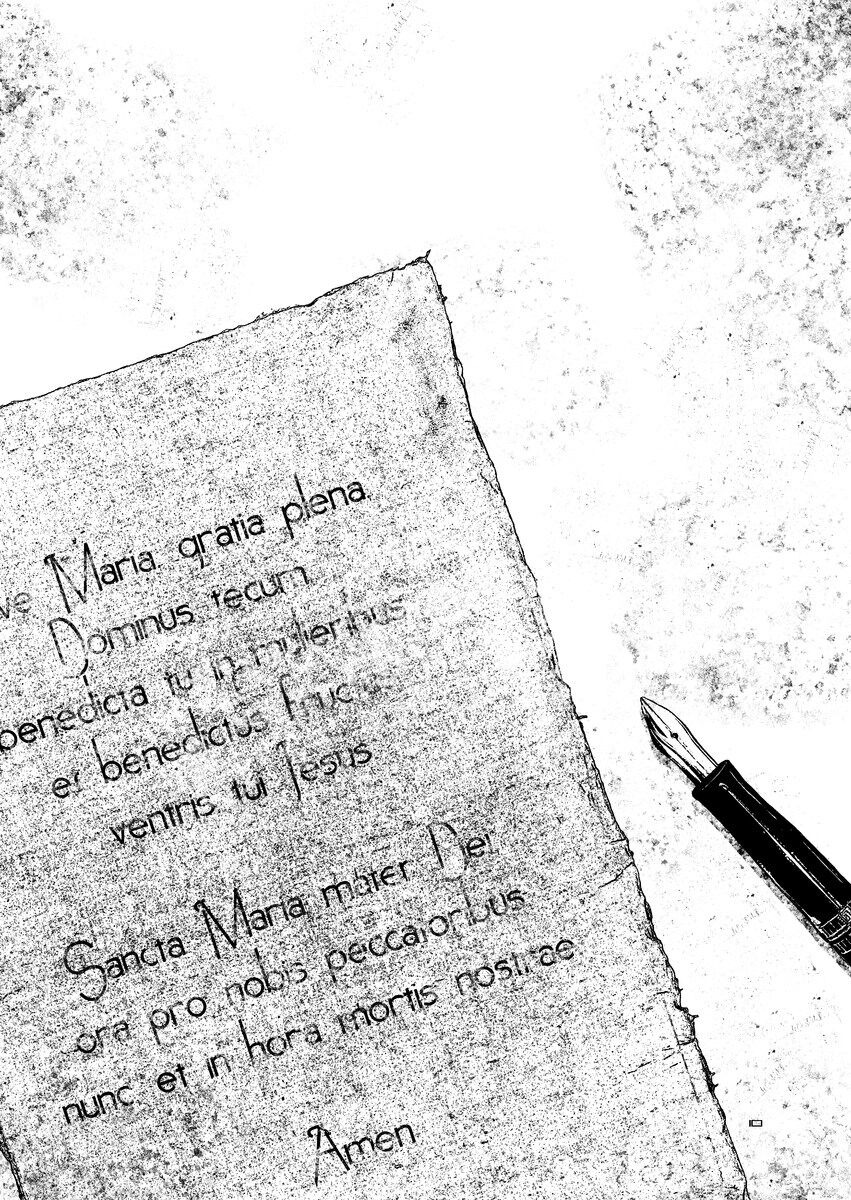 ve Maria gratia plena
Dominus tecum
benedicta tu in mulieribus
et benedictus fructus
ventris tui Jesus
Sancta Maria mater Dei
ora pro nobis peccatoribus
nunc et in hora mortis nostrae
Amen